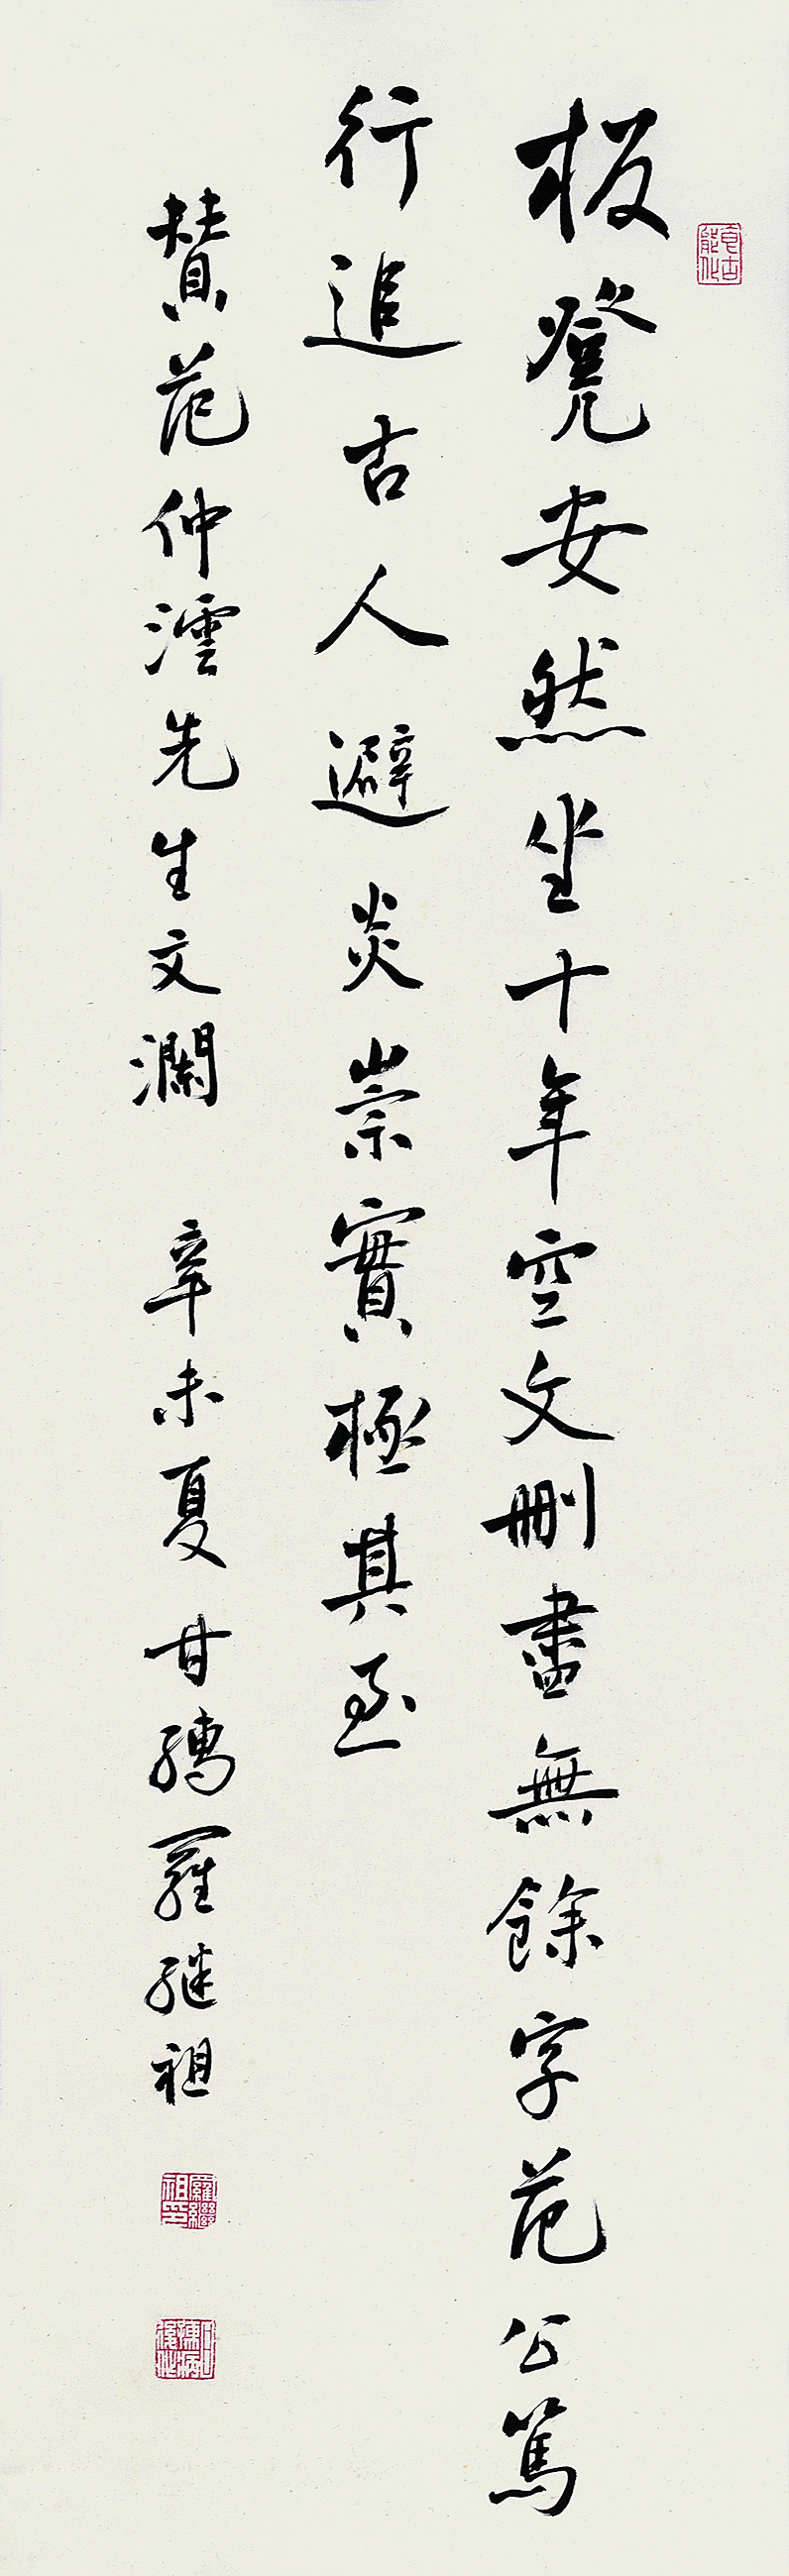 板凳安然坐十年空文刪盡無餘字范公篤
行追古人避炎崇實極其至
贊范仲澐先生文瀾 辛未夏甘孺羅继祖
羅繼祖印